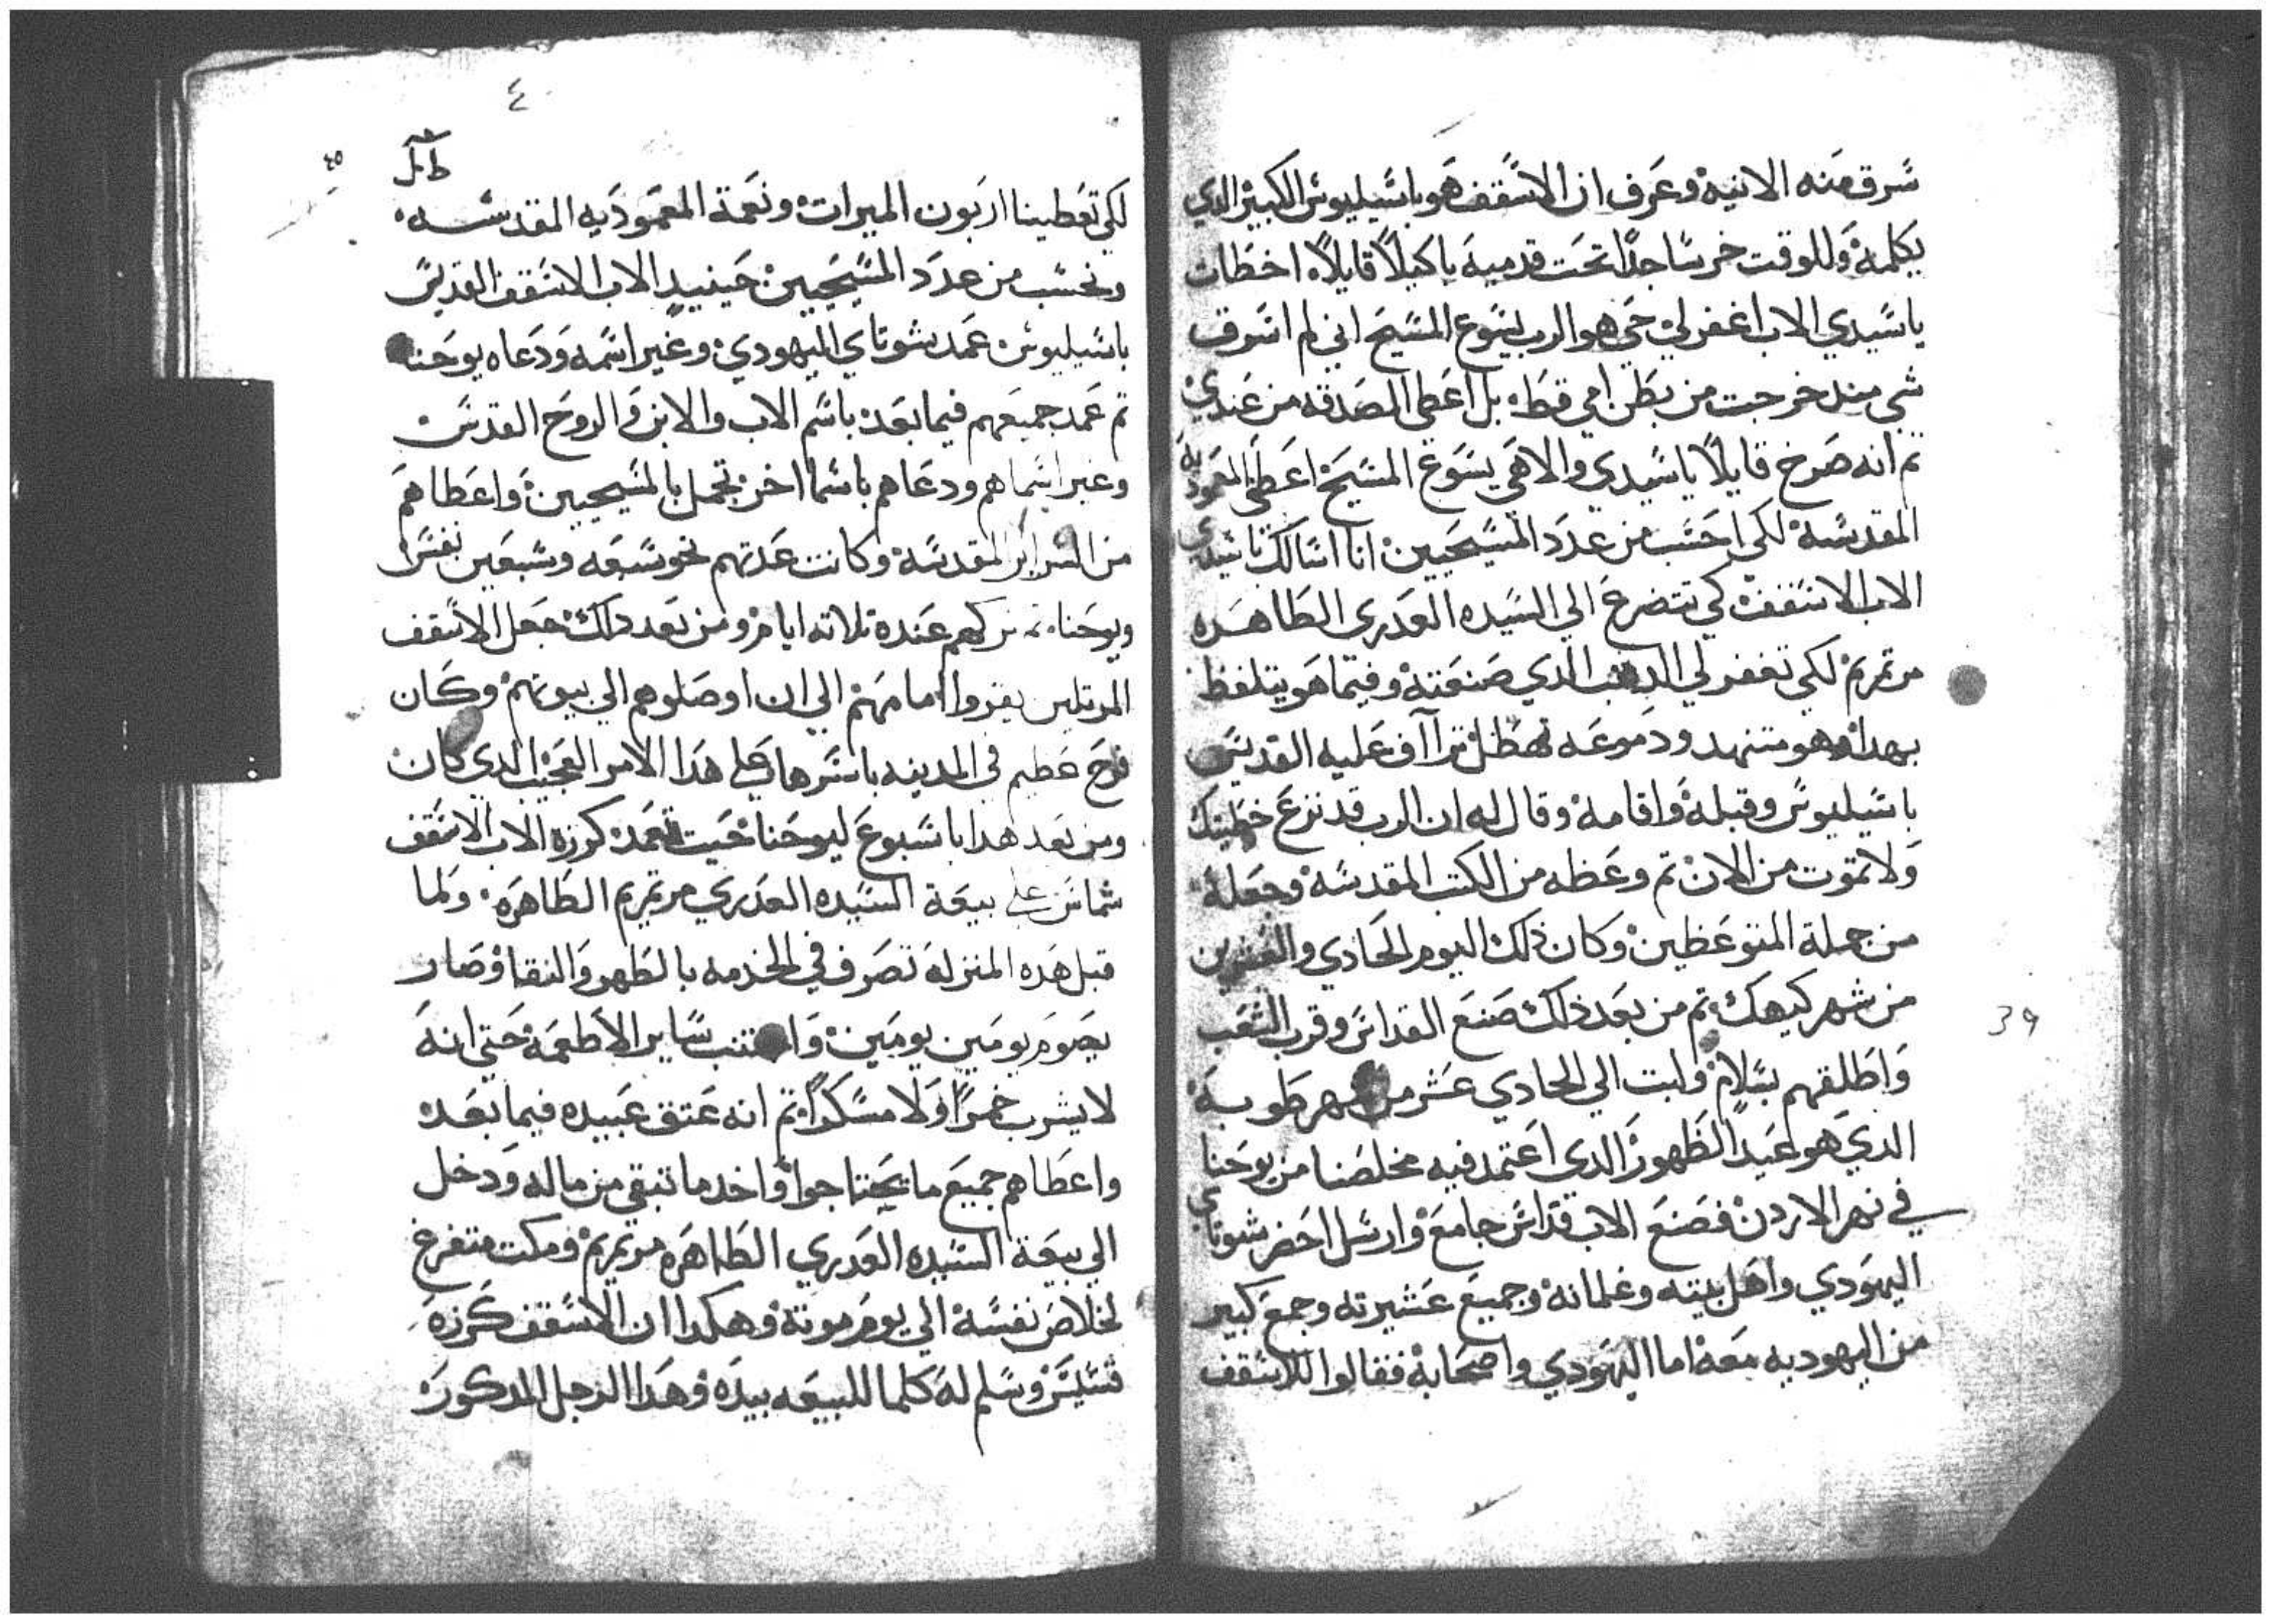 شرق منه الانيه وعرف ان الاسقف هو باسيليوس الكبير الدي
يكلمه وللوقت خر ساجدًا تحت قدميه باكيًا قايلًا اخطات
ياسيدي الاب اغفر لي حي هو الرب يسوع المسيح اني لم اسرق
شي مند خرجت من بطن امي قط بل اعطي الصدقه من عندي
تم انه صرخ قايلًا ياسيدي والاهي يسوع المسيح اعطي المعموديه
المقدسه لكي احسب من عدد المسيحيين انا اسالك ياسيدي
الاب الاسقف كي تتضرع الي السيده العدري الطاهره
مرتمريم لكي تغفر لي الدنب الدي صنعته وفيما هو يتلفظ
بهدا وهو متنهد ودموعه تهطل تراآف عليه القديس
باسيليوس وقبله واقامه وقال له ان الرب قد نزع خطيتك
ولا تموت من الان تم وعظه من الكتب المقدسه وجعله
من جملة المتوعظين وكان ذلك اليوم الحادي والعشرين
من شهر كيهك تم من بعد ذلك صنع القداس وقرب الشعب
واطلقهم بسلام ولبت الي الحادي عشر من شهر طوبه
الدي هو عيد الظهور الدي اعتمد فيه مخلصنا من يوحنا
في نهر الاردن فصنع الاب قداس جامع وارسل احضر شوتاي
اليهودي واهل بيته وغلمانه وجميع عشيرته وجمع كبير
من اليهوديه معه اما اليهودي واصحابه فقالوا للاسقف
39
٤
٤٥
لكي تعطينا اربون الميرات ونعمة المعموديه المقدسه
ونحسب من عدد المسيحيين حينيد الاب الاسقف القديس
باسيليوس عمد شوتاي اليهودي وغير اسمه ودعاه يوحنا
تم عمد جميعهم فيما بعد باسم الاب والابن والروح القدس
وغير اسماهم ودعاهم باسما اخر تجمل بالمسيحيين واعطاهم
من السراير المقدسه وكانت عدتهم نحو سبعه وسبعين نفس
ويوحنا تم تركهم عنده تلاته ايام ومن بعد دلك جعل الاسقف
المرتلين يقروا امامهم الي ان اوصلوهم الي بيوتهم وكان
فرح عظيم في المدينه باسرها علي هدا الامر العجيب الدي كان
ومن بعد هدا باسبوع ليوحنا حيت تعمد كرزه الاب الاسقف
شماس علي بيعة السيده العدري مرتمريم الطاهره ولما
قبل هده المنزله تصرف في الخدمه بالطهر والنقا وصار
يصوم يومين يومين واجتنب ساير الاطعمه حتي انه
لا يشرب خمرًا ولا مسكرًا تم انه عتق عبيده فيما بعد
واعطاهم جميع ما يحتاجوا واخد ما تبقي من ماله ودخل
الي بيعة السيده العدري الطاهره مرتمريم ومكت متفرغ
لخلاص نفسه الي يوم موته وهكدا ان الاسقف كرزه
قسيس وسلم له كلما للبيعه بيده وهدا الرجل المدكور